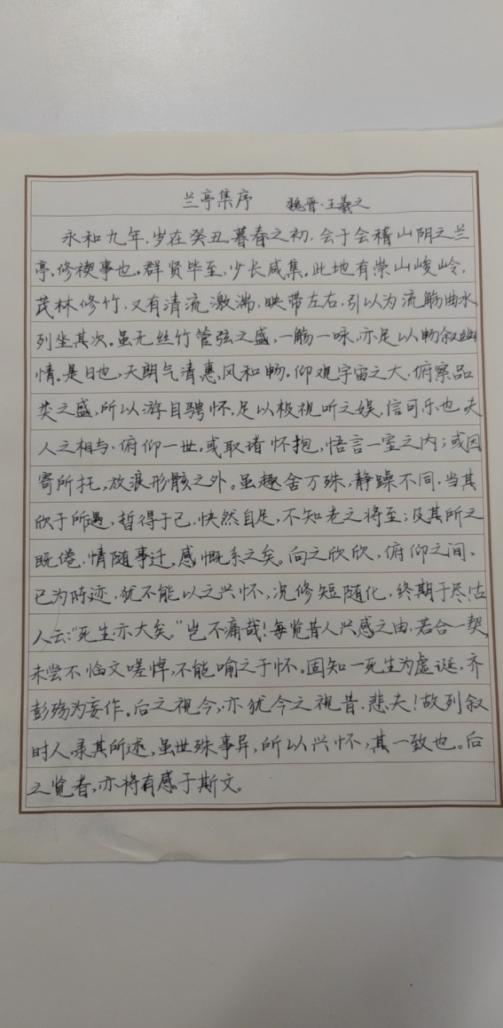 兰亭集序 魏晋·王羲之
永和九年，岁在癸丑，暮春之初，会于会稽山阴之兰
亭，修禊事也。群贤毕至，少长咸集。此地有崇山峻岭，
茂林修竹，又有清流激湍，映带左右，引以为流觞曲水
列坐其次。虽无丝竹管弦之盛，一觞一咏，亦足以畅叙幽
情。是日也，天朗气清，惠风和畅。仰观宇宙之大，俯察品
类之盛，所以游目骋怀，足以极视听之娱，信可乐也 夫
人之相与，俯仰一世，或取诸怀抱，悟言一室之内；或因
寄所托，放浪形骸之外。虽趣舍万殊，静躁不同，当其
欣于所遇，暂得于己，快然自足，不知老之将至；及其所之
既倦，情随事迁，感慨系之矣。向之所欣，俯仰之间，
已为陈迹，犹不能以之兴怀，况修短随化，终期于尽！古
人云：“死生亦大矣。”岂不痛哉！每览昔人兴感之由，若合一契
未尝不临文嗟悼，不能喻之于怀。固知一死生为虚诞，齐
彭殇为妄作。后之视今，亦犹今之视昔，悲夫！故列叙
时人，录其所述，虽世殊事异，所以兴怀，其一致也。后
之览者，亦将有感于斯文。